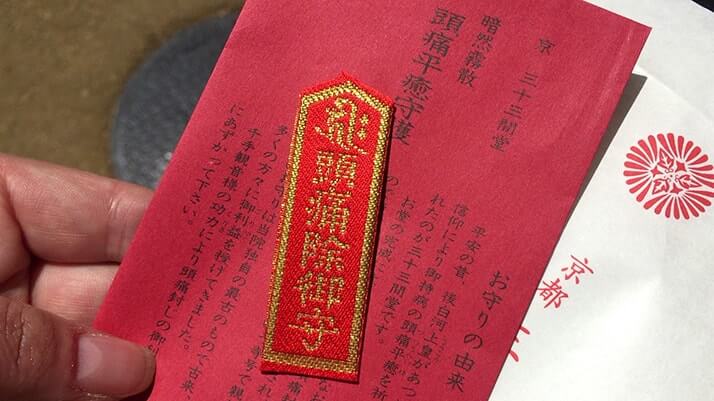 京 三十三間堂
暗然霧散
頭痛平癒守護
お守りの由来
平安の昔、後白河上皇があつ
信仰により御持病の頭痛平癒を祈
れたのが三十三間堂です。
お堂の完成に
守りは当院独自の最古のもので古来、
多くの方々に御利益を授けてきました。
千手観音様の功力により頭痛封じの御
にあずかって下さい。
頭痛除御守
京都